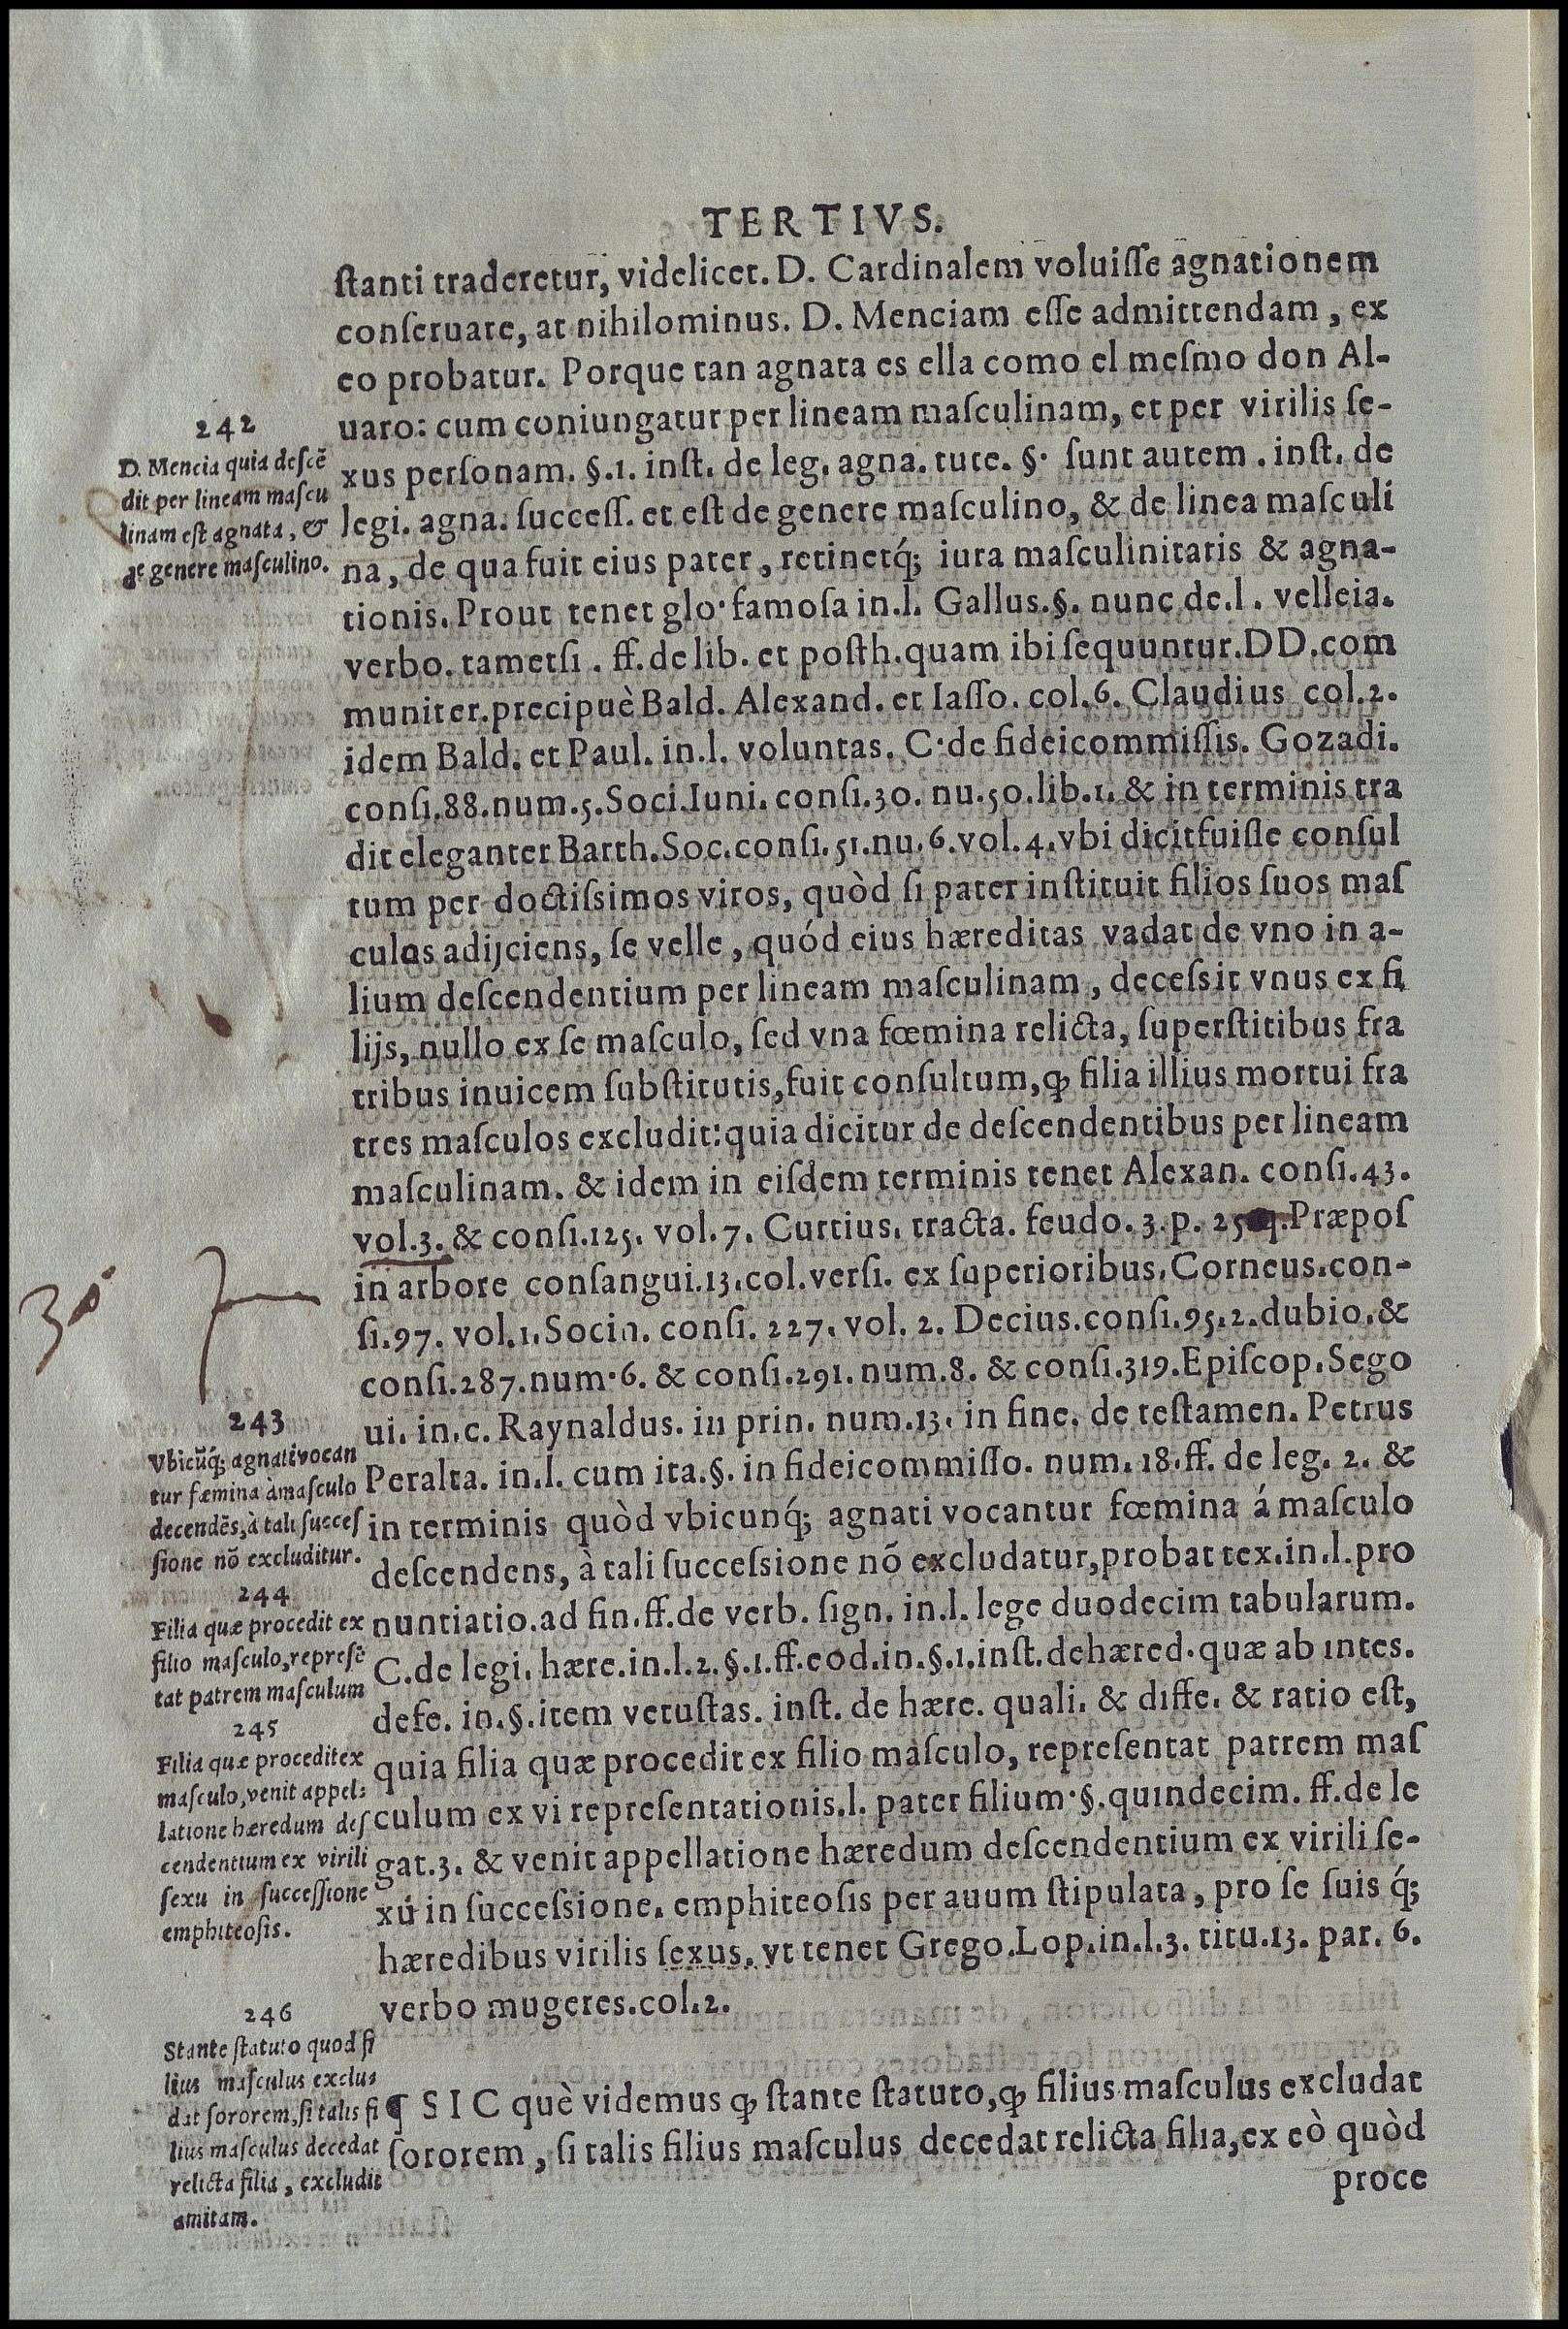 TERTIVS.
ſtanti traderetur, videlicet. D. Cardinalem voluiſſe agnationem
conſeruare, at nihilominus. D. Menciam eſſe admittendam, ex
eo probatur. Porque tan agnata es ella como el meſmo don Al-
uaro: cum coniungatur per lineam maſculinam, et per virilis ſe-
xus perſonam. §.1. inſt. de leg. agna. tute. §. ſunt autem. inſt. de
legi. agna. ſucceſſ. et eſt de genere maſculino, & de linea maſculi
na, de qua fuit eius pater, retinetq́; iura maſculinitatis & agna-
tionis. Prout tenet glo. famoſa in.l. Gallus.§. nunc de.l. velleia.
verbo. tametſi. ff. de lib. et poſth. quam ibi ſequuntur. DD. com
muniter. precipuè Bald. Alexand. et Iaſſo. col.6. Claudius col.2.
idem Bald. et Paul. in.l. voluntas. C. de fideicommiſſis. Gozadi.
conſi.88.num.5.Soci.Iuni. conſi.30. nu.50.lib.1. & in terminis tra
dit eleganter Barth.Soc.conſi.51.nu.6.vol.4.vbi dicit fuiſſe conſul
tum per doctiſsimos viros, quòd ſi pater inſtituit filios ſuos maſ
culos adijciens, ſe velle, quód eius hæreditas vadat de vno in a-
lium deſcendentium per lineam maſculinam, deceſsit vnus ex fi
lijs, nullo ex ſe maſculo, ſed vna fœmina relicta, ſuperſtitibus fra
tribus inuicem ſubſtitutis, fuit conſultum, ꝙ filia illius mortui fra
tres maſculos excludit: quia dicitur de deſcendentibus per lineam
maſculinam. & idem in eiſdem terminis tenet Alexan. conſi.43.
vol.3. & conſi.125. vol.7. Curtius. tracta. feudo.3.p. Præpoſ
in arbore conſangui.13.col.verſi. ex ſuperioribus. Corneus.con-
ſi.97. vol.1.Socin. conſi. 227. vol. 2. Decius.conſi.95.2.dubio. &
conſi.287.num.6. & conſi.291. num.8. & conſi.319.Epiſcop.Sego
ui. in.c. Raynaldus. in prin. num.13. in fine. de teſtamen. Petrus
Peralta. in.l. cum ita.§. in fideicommiſſo. num. 18.ff. de leg. 2. &
in terminis quòd vbicunq́; agnati vocantur fœmina á maſculo
deſcendens, à tali ſucceſsione nõ excludatur, probat tex.in.l.pro
nuntiatio.ad fin.ff.de verb. ſign. in.l. lege duodecim tabularum.
C.de legi. hære.in.l.2.§.1.ff.eod.in.§.1.inſt.dehæred.quæ ab intes.
defe. in.§.item vetuſtas. inſt. de hære. quali. & diffe. & ratio eſt,
quia filia quæ procedit ex filio maſculo, repreſentat patrem maſ
culum ex vi repreſentationis.l. pater filium.§.quindecim. ff.de le
gat.3. & venit appellatione hæredum deſcendentium ex virili ſe-
xú in ſucceſsione. emphiteoſis per auum ſtipulata, pro ſe ſuis q́;
hæredibus virilis ſexus. vt tenet Grego.Lop.in.l.3. titu.13. par. 6.
verbo mugeres.col.2.
¶ SIC què videmus ꝙ ſtante ſtatuto, ꝙ filius maſculus excludat
ſororem, ſi talis filius maſculus decedat relicta filia, ex eò quòd
proce
242
D. Mencia quia deſcẽ
dit per lineam maſcu
linam eſt agnata, &
de genere maſculino.
30
243
Vbicũq́; agnati vocan
tur fæmina à maſculo
decendẽs, à tali ſucceſ
ſione nõ excluditur.
244
Filia quæ procedit ex
filio maſculo, repreſẽ
tat patrem maſculum
245
Filia quæ procedit ex
maſculo, venit appel:
latione hæredum deſ
cendentium ex virili
ſexu in ſucceſſione
emphiteoſis.
246
Stante ſtatuto quod fi
lius maſculus exclu:
dat ſororem, ſi talis fi
lius maſculus decedat
relicta filia, excludit
amitam.